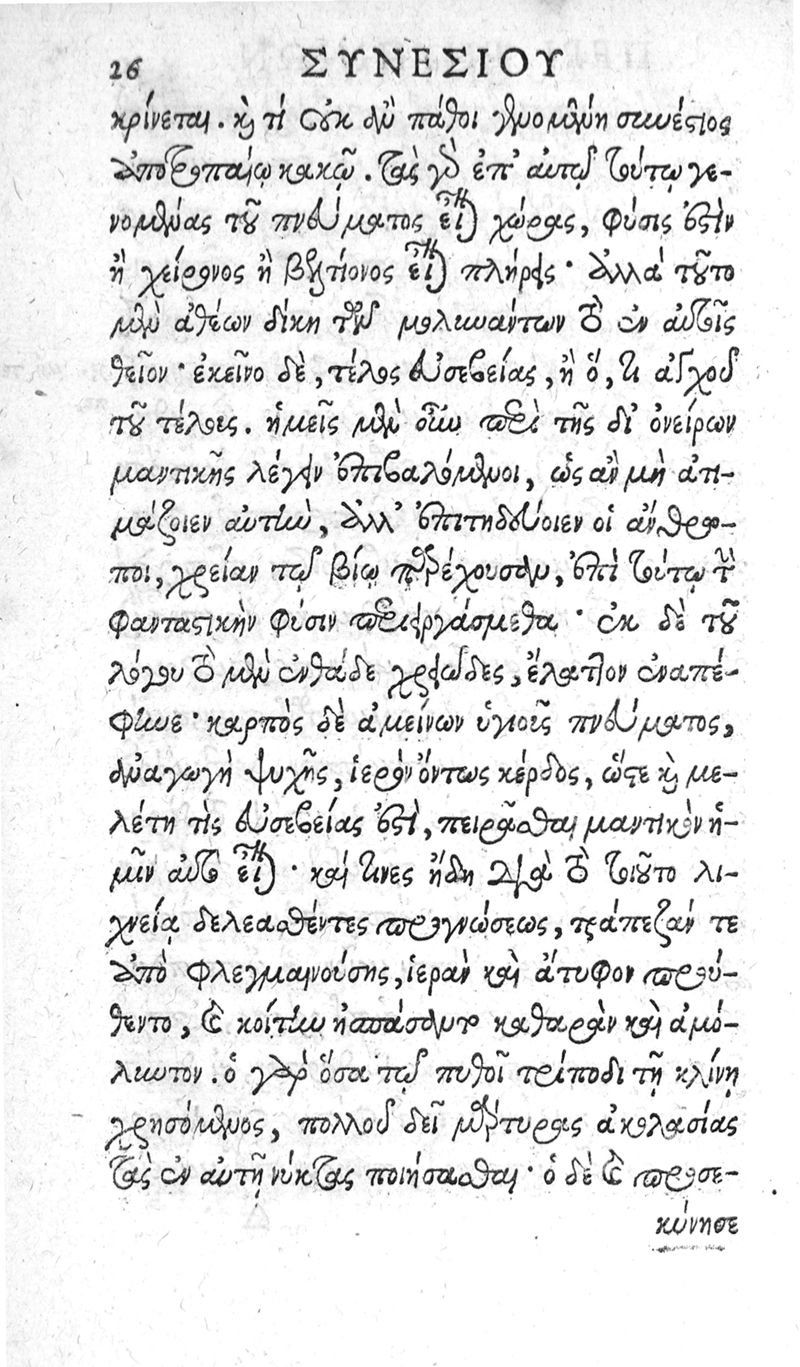 26 ΣΥΝΕΣΙΟΥ
κρίνεται. καὶ τί οὐκ ἂν πάθοι γενομένη συνέστιος
ἀποτροπαίῳ κακῷ. τὰς γὰρ ἐπ' αὐτῷ τούτῳ γε-
νομένας τοῦ πνεύματος εἶναι χώρας, φύσις ἐστὶν
ἢ χείρονος ἢ βελτίονος εἶναι πλήρεις· ἀλλὰ τοῦτο
μὲν ἀθέων δίκη τῶν μολυνάντων τὸ ἐν αὐτοῖς
θεῖον· ἐκεῖνο δὲ, τέλος εὐσεβείας, ἢ ὅ, τι ἀγχοῦ
τοῦ τέλους. ἡμεῖς μὲν οὖν περὶ τῆς δι' ὀνείρων
μαντικῆς λέγειν ἐπιβαλόμενοι, ὡς ἂν μὴ ἀτι-
μάζοιεν αὐτὴν, ἀλλ' ἐπιτηδεύοιεν οἱ ἄνθρω-
ποι, χρείαν τῷ βίῳ παρέχουσαν, ἐπὶ τούτῳ τὴν
φανταστικὴν φύσιν περιειργάσμεθα· ἐκ δὲ τοῦ
λόγου τὸ μὲν ἐνθάδε χρειῶδες, ἔλαττον ἐναπέ-
φηνε· καρπὸς δὲ ἀμείνων ὑγιοῦς πνεύματος,
ἀναγωγὴ ψυχῆς, ἱερὸν ὄντως κέρδος, ὥστε καὶ με-
λέτη τὶς εὐσεβείας ἐστὶ, πειρᾶσθαι μαντικὸν ἡ-
μῖν αὐτὸ εἶναι· καί τινες ἤδη διὰ τὸ τοιοῦτο λι-
χνείᾳ δελεασθέντες προγνώσεως, τράπεζάν τε
ἀπὸ φλεγμαινούσης, ἱερὰν καὶ ἄτυφον πρού-
θεντο, καὶ κοίτην ἠσπάσαντο καθαρὰν καὶ ἀμό-
λυντον. ὁ γὰρ ὅσα τῷ πυθοῖ τρίποδι τῇ κλίνῃ
χρησόμενος, πολλοῦ δεῖ μάρτυρας ἀκολασίας
τὰς ἐν αὐτῇ νύκτας ποιήσασθαι· ὁ δὲ καὶ προσε-
κύνησε